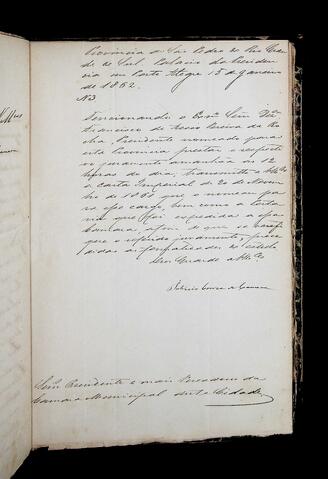 Provincia de São Pedro do Rio Grande
do Sul. Palacio da Presidencia
em Porto Alegre 15 de Janeiro
de 1862.
N3
Tencionando o Exmo Senr Dor
Francisco de Assis Pereira da Rocha,
Presidente nomeado para
esta Provincia prestar o respectivo
juramento amanhãa as 12
horas do dia, transmitto a
a Carta Imperial de
de 1861 que o nomeou para
esse cargo, bem como a
que foi expedida a essa
Camara, afim de que se
o referido juramento,
as formalidades do estilo
Deos Guarde a
Senr Presidente e mais Vereadores da
Camara Municipal desta Cidade